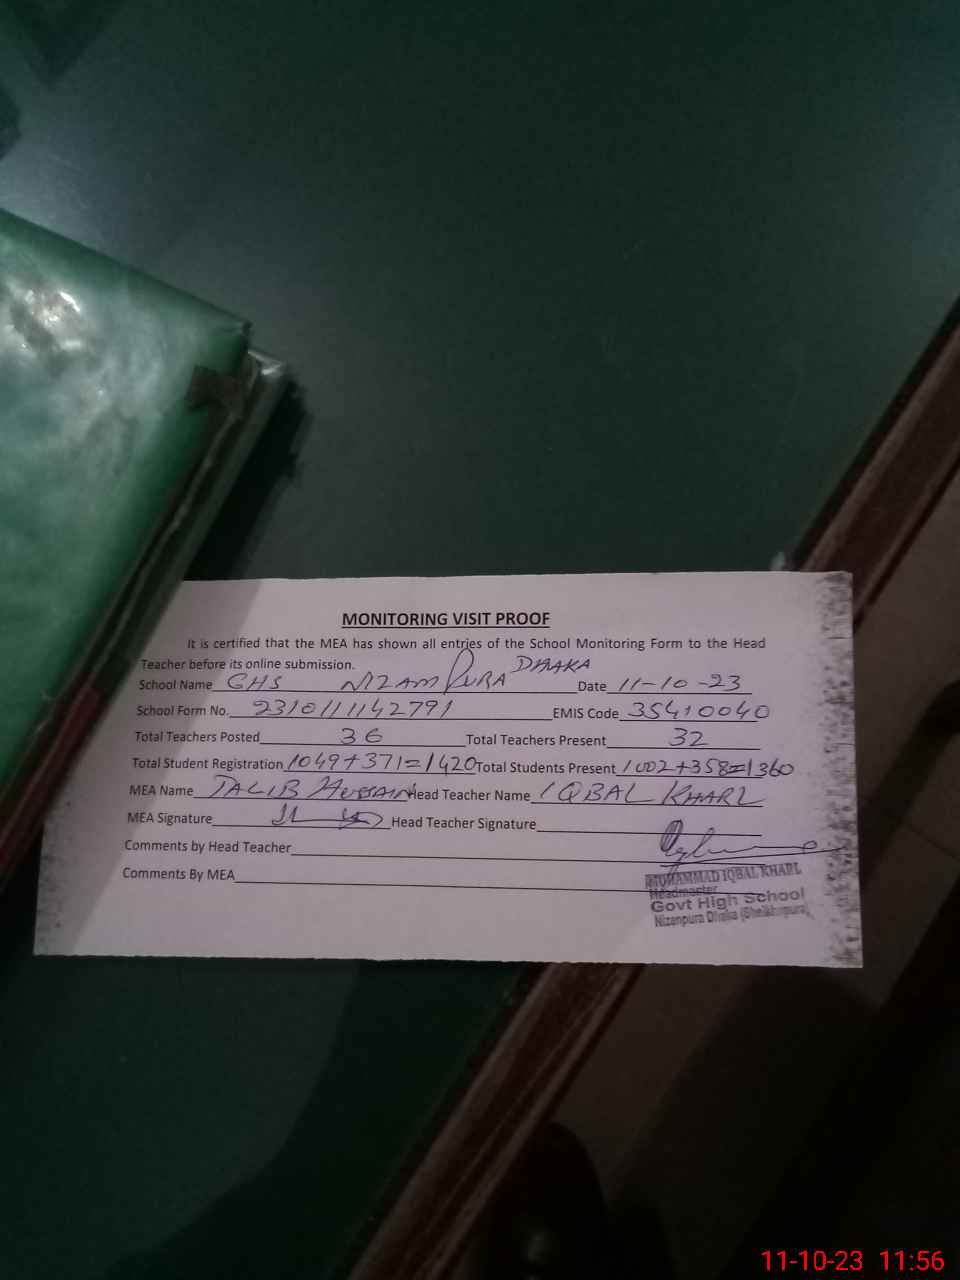 MONITORING VISIT PROOF
It is certified that the MEA has shown all entries of the School Monitoring Form to the Head
Teacher before its online submission.
School Name GHS NIZAMPURA DHAKA Date 11-10-23
School Form No. 2310111142791 EMIS Code 35410040
Total Teachers Posted 36 Total Teachers Present 32
Total Student Registration 1049+371=1420 Total Students Present 1002+358=1360
MEA Name TALIB HUSSAIN Head Teacher Name IQBAL KHARL
MEA Signature Head Teacher Signature
Comments by Head Teacher
Comments By MEA
MUHAMMAD IQBAL KHARL
Headmaster
Govt High School
Nizanpura Dhaka (Sheikhupura)
11-10-23 11:56